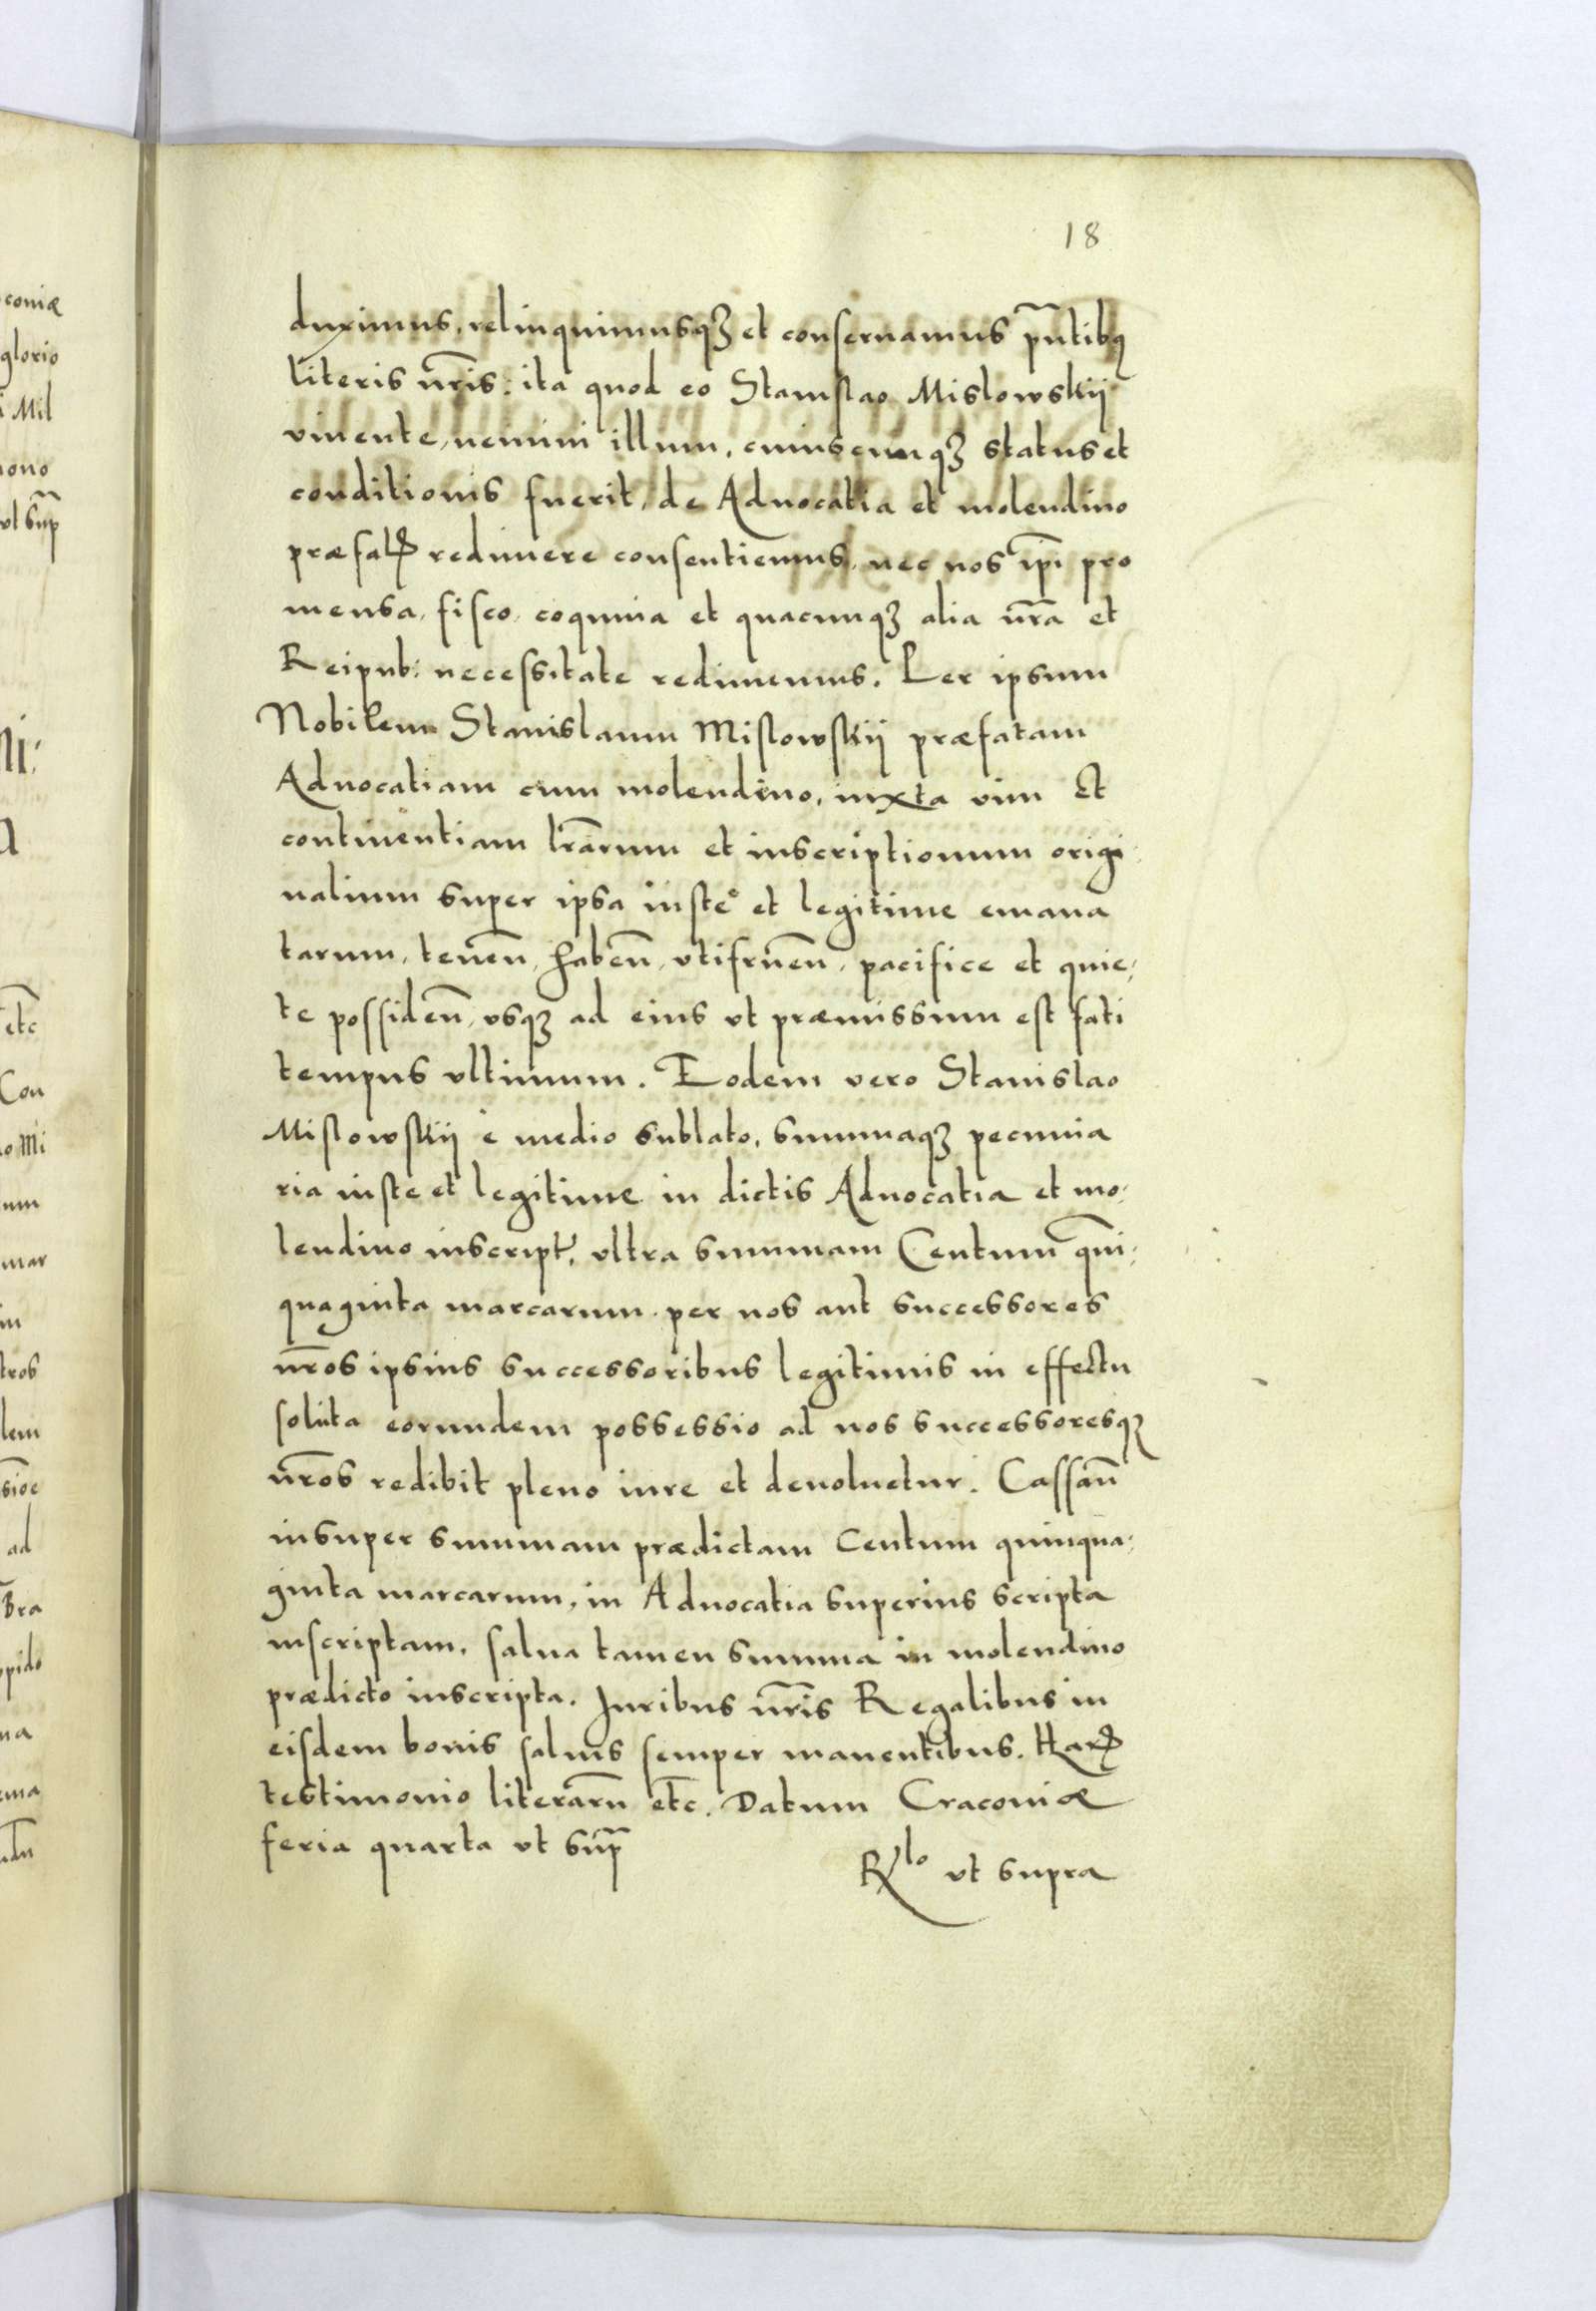 coniæ
glorio
i Mil
iono
vt sup̃
etc̃
Con
o Mi
um
mar
in
tros
lem
sioe
ad
Bra
pido
na
ema
18
duximus, relinquimusqꝫ et conseruamus pñtibꝯ
literis nr̃is: ita quod eo Stanislao Mislowskij
viuente, nemini illum, cuiuscunqꝫ status et
conditionis fuerit, de Aduocatia et molendino
præfatꝭ redimere consentiemus, nec nos ip̃i pro
mensa, fisco, coquina et quacunqꝫ alia nr̃a et
Reipub: necessitate redimemus. Per ipsum
Nobilem Stanislaum Mislowskij præfatam
Aduocatiam cum molendino, iuxta vim et
continentiam lr̃arum et inscriptionum origi-
nalium super ipsa iuste et legitime emana
tarum, teneñ, habeñ, vtifrueñ, pacifice et quie-
te possideñ, vsqꝫ ad eius vt præmissum est fati
tempus vltimum. Eodem vero Stanislao
Mislowskij è medio sublato, summaqꝫ pecunia
ria iuste et legitime in dictis Aduocatia et mo-
lendino inscript, vltra summam Centum qui-
quaginta marcarum per nos aut successores
nr̃os ipsius successoribus legitimis in effectu
soluta eorundem possessio ad nos successoresqꝫ
nr̃os redibit pleno iure et deuoluetur. Cassañ
insuper summam prædictam Centum quinqua-
ginta marcarum, in Aduocatia superius scripta
inscriptam, salua tamen summa in molendino
prædicto inscripta. Juribus nr̃is Regalibus in
eisdem bonis saluis semper manentibus. Harꝭ
testimonio literarũ etc̃. Datum Cracouiæ
feria quarta vt sup̃
R^lo vt supra